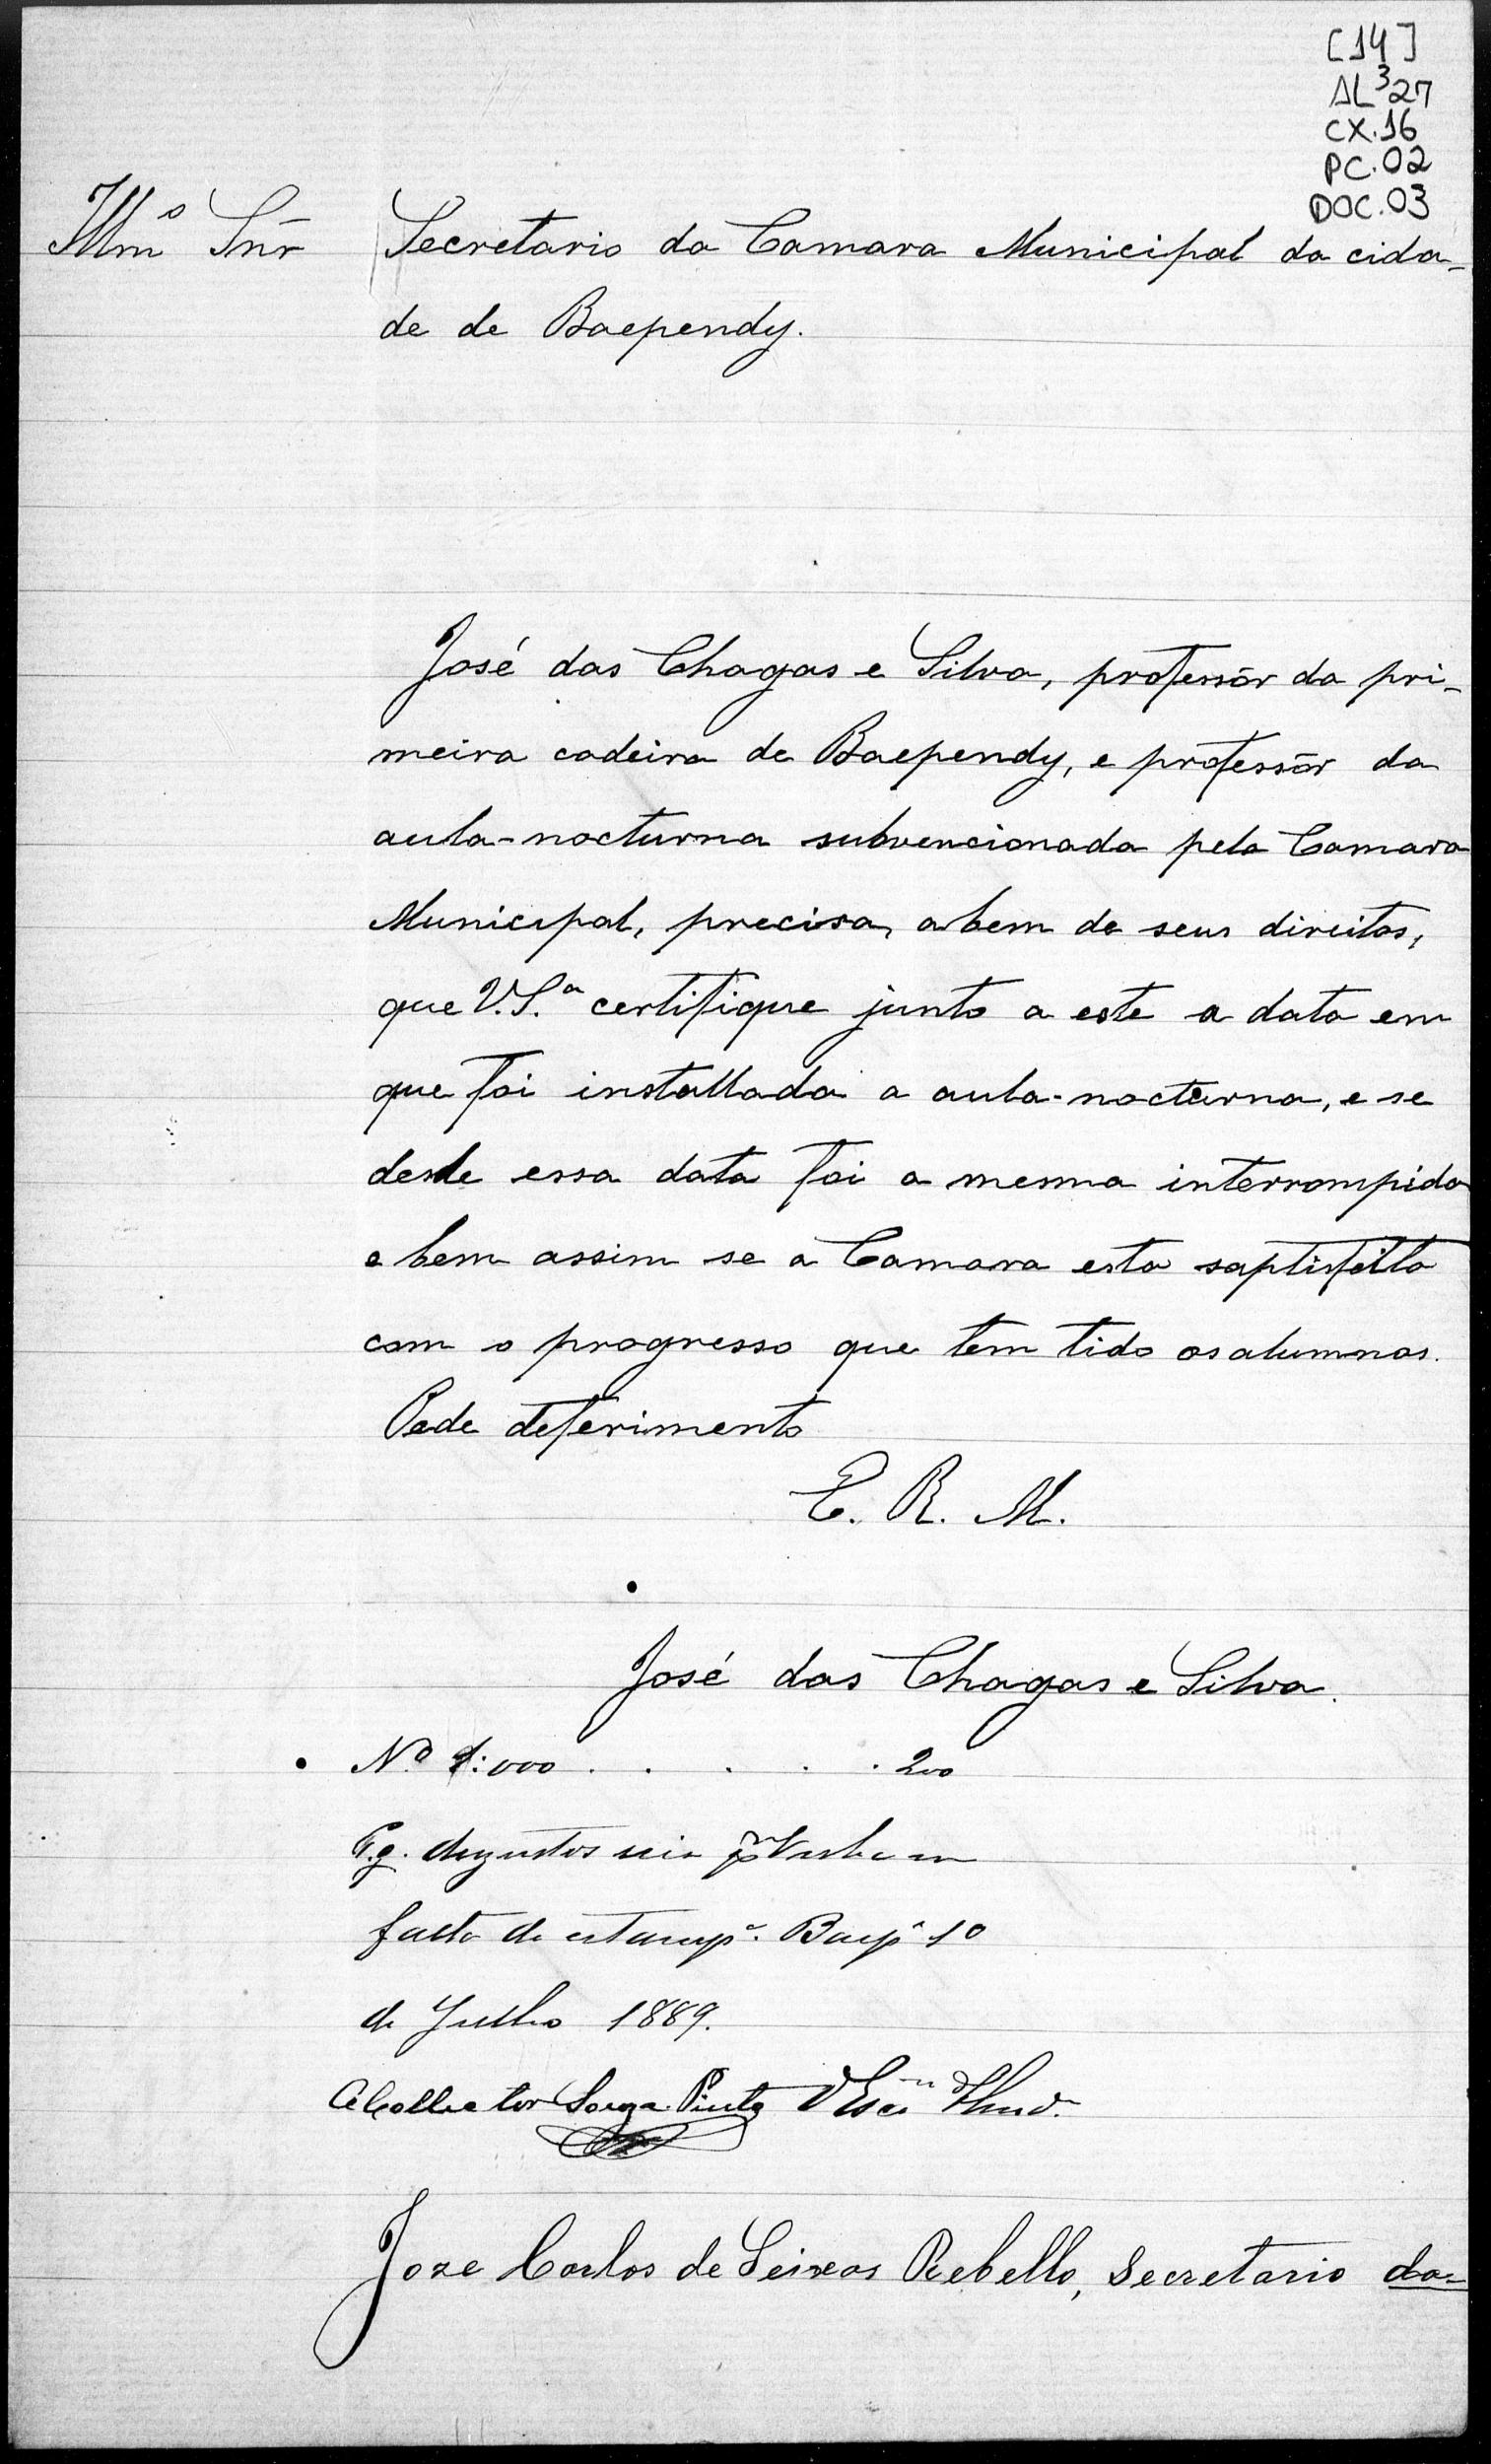 [14]
AL³27
CX.16
PC.02
DOC.03
Illmº Snr̃ Secretario da Camara Municipal da cida-
de de Baependy.
José das Chagas e Silva, professôr da pri-
meira cadeira de Baependy, e professôr da
aula-nocturna subvencionada pela Camara
Municipal, precisa, a bem de seus direitos,
que V.S.ª certifique junto a este a data em
que foi installada a aula-nocturna, e se
desde essa data foi a mesma interrompida
e bem assim se a Camara esta saptisfeita
com o progresso que tem tido os alumnos.
Pede deferimento
E. R. M.
José das Chagas e Silva.
Nº 1:000 . . . . . 200
Pg. duzentos reis pr Verba em
falta de estampª. Baepᵈ 10
de Julho 1889.
O Collector Souza Pinto O Escᵐ
Joze Carlos de Seixas Rebello, Secretario da-